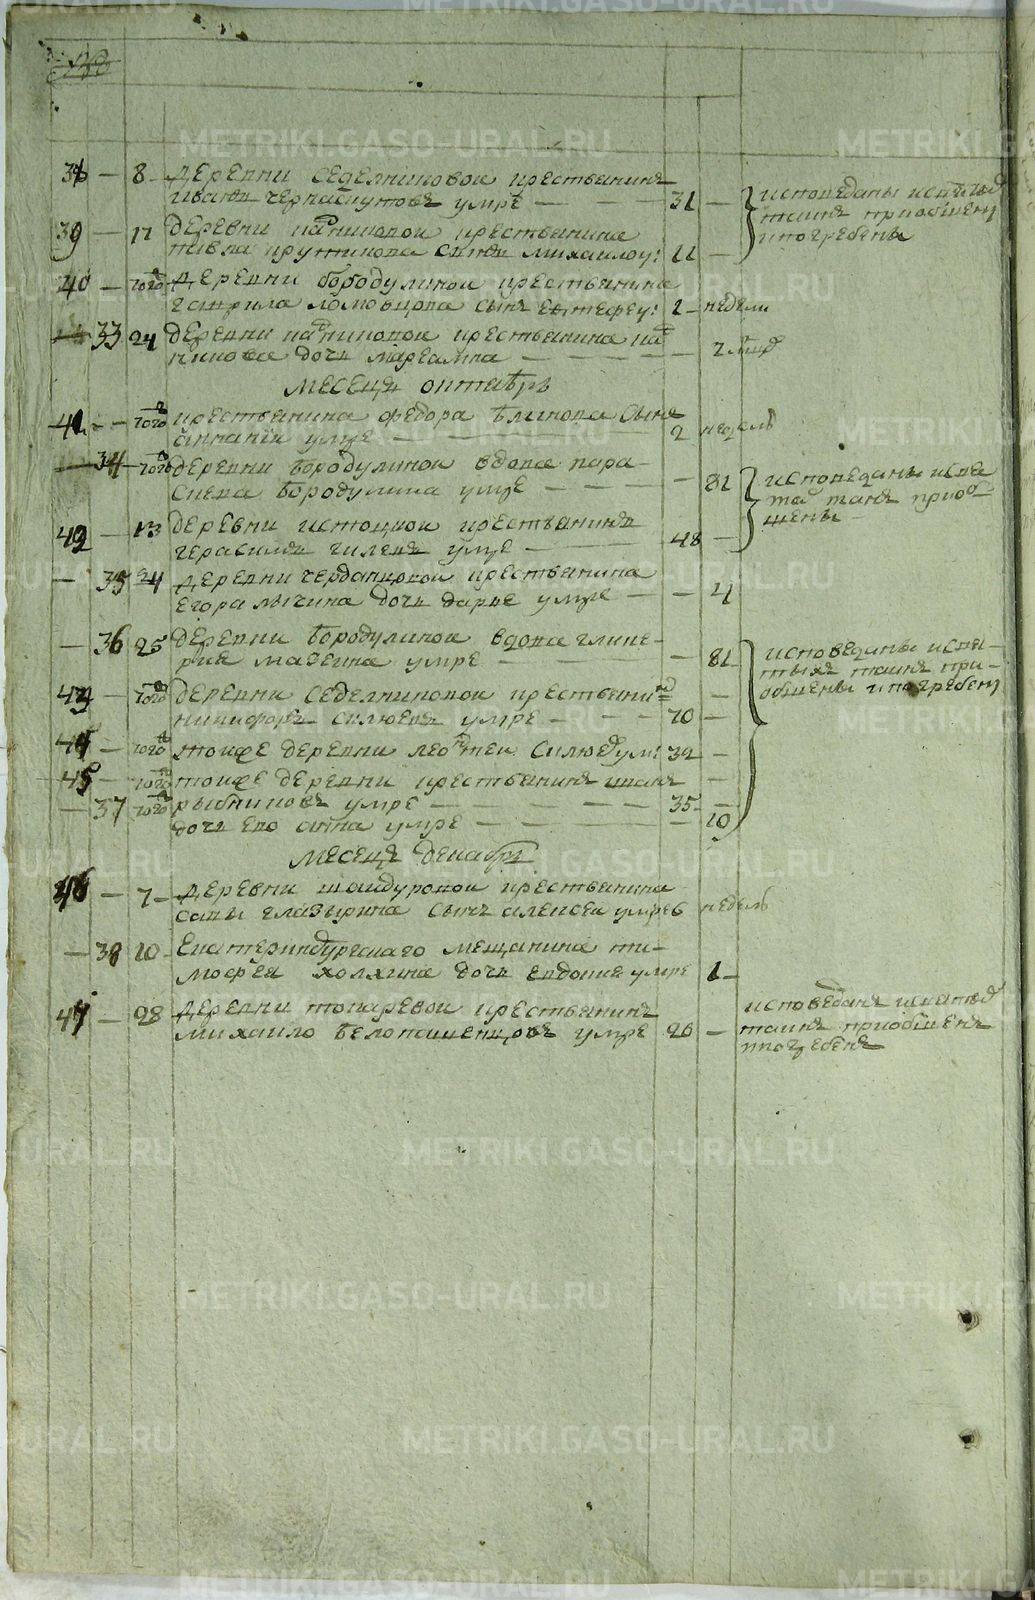 38 — 8 деревни Седелниковои крестьянинъ
Иванъ Черноскутовъ умре — — — 31 —
исповеданы и святыхъ
таинъ приобщены
и погребены
39 — 11 деревни крестьянина
сынъ Михаило у: 11 —
40 — того деревни Бородулинои крестьянина
Гаврила Ломовцова сынъ у: 2 — недели
33 24 деревни крестьянина
дочь — — — — 2
месецъ октябрь
41 — — того крестьянина Федора Блинова сынъ
умре — — — 2 недель
— 34 — того деревни Бородулинои вдова Пара-
скева Бородулина умре — — — 81
исповеданы и свя-
таинъ приоб-
щены
42 — 13 деревни Истоцкои крестьянинъ
Герасимъ Гилевъ умре — — — 48 —
— 35 24 деревни Черданцовои крестьянина
Егора Лычина дочь Дарье умре — — 4
— 36 25 деревни Бородулинои вдова Глике-
рия Мазеина умре — — — 81
исповеданы и святыхъ
таинъ при-
общены и погребены
43 — того деревни Седелниковои крестьянинъ
Никифоръ Силюевъ умре — — — 70 —
44 — того тоиже деревни Леонтеи Силюевъ ум: 32 —
45 — того тоиже деревни крестьянинъ Иванъ —
— 37 того Рыбниковъ умре — — — 35 —
дочь ево Анна умре — — — — 10
месецъ декабрь
46 — 7 — деревни Шаидуровои крестьянина
Савы Глазырина сынъ Алексеи умре 6 недель
— 38 10 — Екатеринбургскаго мещанина Ти-
мофея Холкина дочь Евдокия умре 1 —
47 — 28 деревни Токаревои крестьянинъ
Михаило Белопашенцовъ умре 20 —
исповеданъ и святыхъ
таинъ приобщенъ
и погребенъ
METRIKI.GASO-URAL.RU